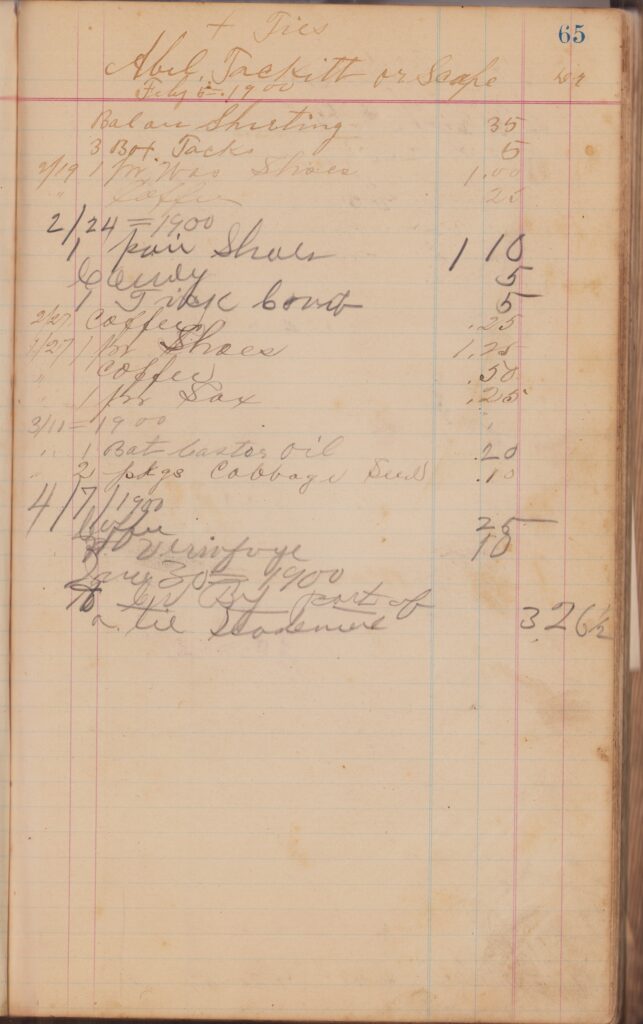 65
+ Ties
Abel Tackitt or Seafe Dr
Feby 5 1900
Bal on Shirting 35
3 Box Tacks 5
2/19 1 pr Wos Shoes 1.00
" Coffee 25
2/24 = 1900
1 pair Shoes 1 10
Candy 5
1 5
2/27 Coffee .25
1/27 1 pr Shoes 1.25
" Coffee .50
" 1 pr Sox .25
3/11 = 1900
" 1 Bot Castor Oil .20
" 2 pkgs Cabbage Seed .10
4/7/1900
Coffee 25
Vermfuge 10
30 1900
To Cr By part of
a tie Statement 3.26 1/2